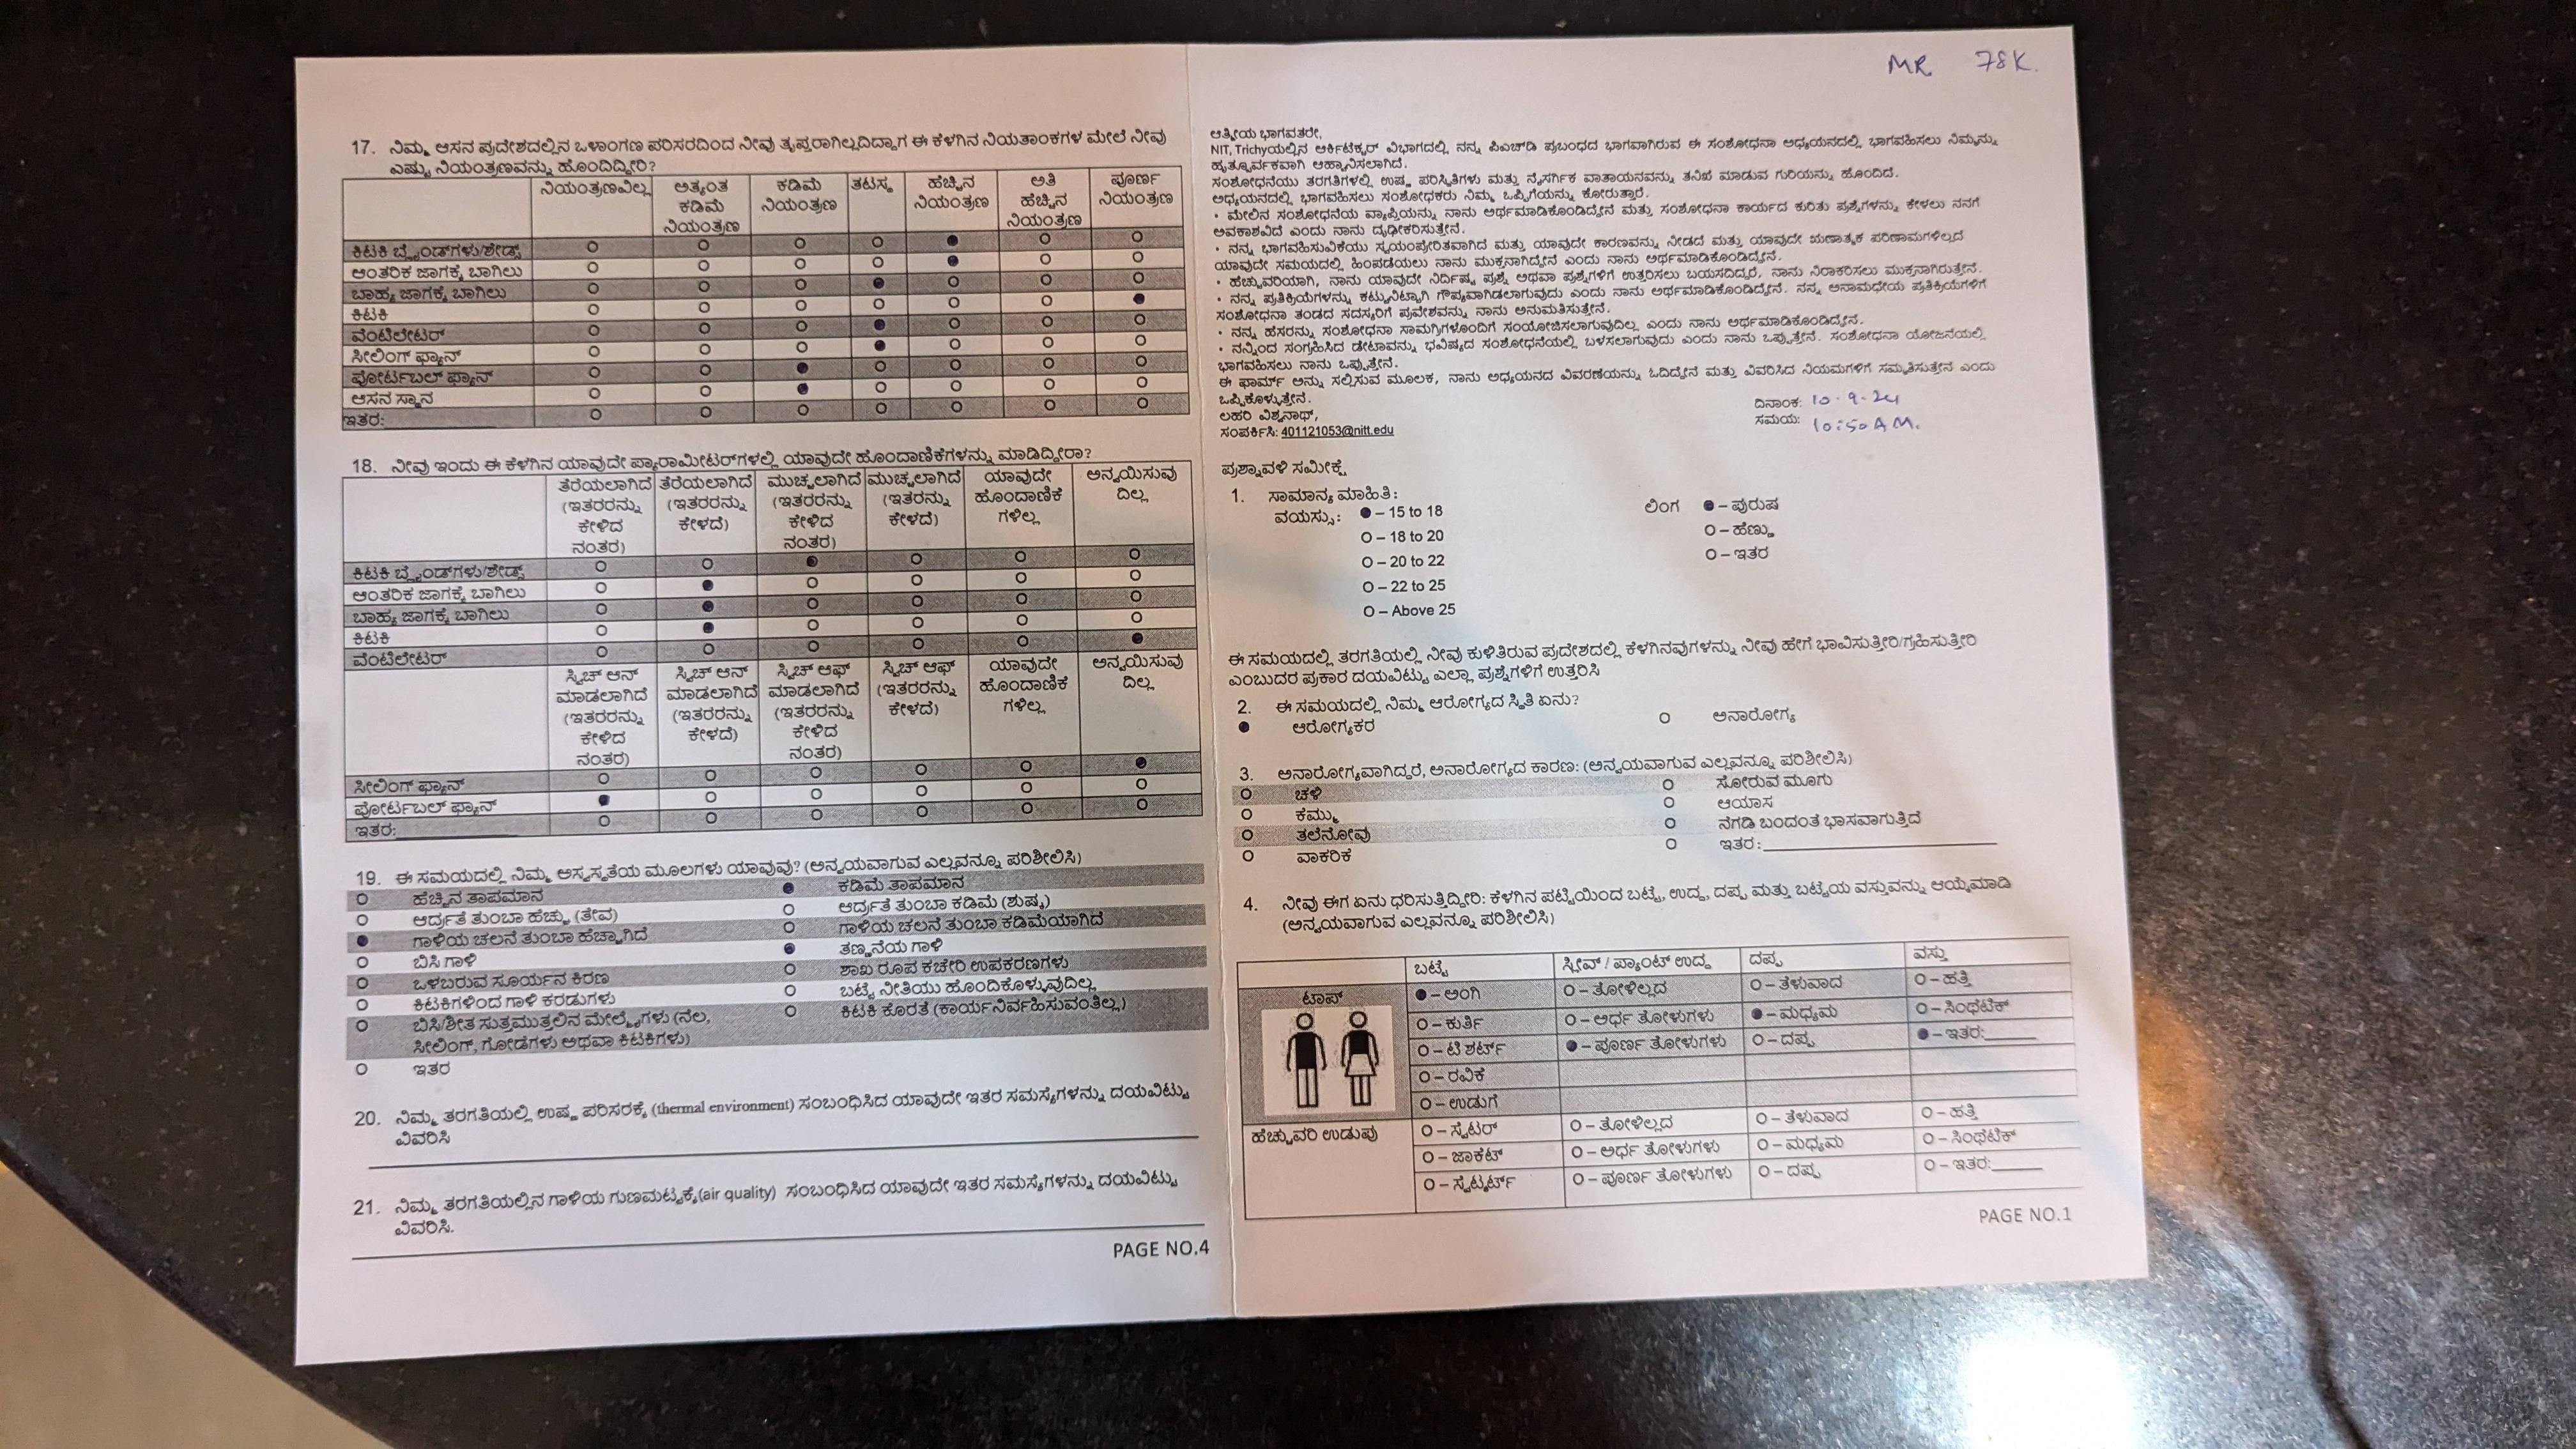 17. ನಿಮ್ಮ ಆಸನ ಪ್ರದೇಶದಲ್ಲಿನ ಒಳಾಂಗಣ ಪರಿಸರದಿಂದ ನೀವು ತೃಪ್ತರಾಗಿಲ್ಲದಿದ್ದಾಗ ಈ ಕೆಳಗಿನ ನಿಯತಾಂಕಗಳ ಮೇಲೆ ನೀವು
ಎಷ್ಟು ನಿಯಂತ್ರಣವನ್ನು ಹೊಂದಿದ್ದೀರಿ?
ನಿಯಂತ್ರಣವಿಲ್ಲ ಅತ್ಯಂತ ಕಡಿಮೆ ನಿಯಂತ್ರಣ ಕಡಿಮೆ ನಿಯಂತ್ರಣ ತಟಸ್ಥ ಹೆಚ್ಚಿನ ನಿಯಂತ್ರಣ ಅತಿ ಹೆಚ್ಚಿನ ನಿಯಂತ್ರಣ ಪೂರ್ಣ ನಿಯಂತ್ರಣ
ಕಿಟಕಿ ಬ್ಲೈಂಡ್‌ಗಳು/ಶೇಡ್ಸ್
ಆಂತರಿಕ ಜಾಗಕ್ಕೆ ಬಾಗಿಲು
ಬಾಹ್ಯ ಜಾಗಕ್ಕೆ ಬಾಗಿಲು
ಕಿಟಕಿ
ವೆಂಟಿಲೇಟರ್
ಸೀಲಿಂಗ್ ಫ್ಯಾನ್
ಪೋರ್ಟಬಲ್ ಫ್ಯಾನ್
ಆಸನ ಸ್ಥಾನ
ಇತರ:
18. ನೀವು ಇಂದು ಈ ಕೆಳಗಿನ ಯಾವುದೇ ಪ್ಯಾರಾಮೀಟರ್‌ಗಳಲ್ಲಿ ಯಾವುದೇ ಹೊಂದಾಣಿಕೆಗಳನ್ನು ಮಾಡಿದ್ದೀರಾ?
ತೆರೆಯಲಾಗಿದೆ (ಇತರರನ್ನು ಕೇಳಿದ ನಂತರ) ತೆರೆಯಲಾಗಿದೆ (ಇತರರನ್ನು ಕೇಳದೆ) ಮುಚ್ಚಲಾಗಿದೆ (ಇತರರನ್ನು ಕೇಳಿದ ನಂತರ) ಮುಚ್ಚಲಾಗಿದೆ (ಇತರರನ್ನು ಕೇಳದೆ) ಯಾವುದೇ ಹೊಂದಾಣಿಕೆ ಗಳಿಲ್ಲ ಅನ್ವಯಿಸುವು ದಿಲ್ಲ
ಕಿಟಕಿ ಬ್ಲೈಂಡ್‌ಗಳು/ಶೇಡ್ಸ್
ಆಂತರಿಕ ಜಾಗಕ್ಕೆ ಬಾಗಿಲು
ಬಾಹ್ಯ ಜಾಗಕ್ಕೆ ಬಾಗಿಲು
ಕಿಟಕಿ
ವೆಂಟಿಲೇಟರ್
ಸ್ವಿಚ್ ಆನ್ ಮಾಡಲಾಗಿದೆ (ಇತರರನ್ನು ಕೇಳಿದ ನಂತರ) ಸ್ವಿಚ್ ಆನ್ ಮಾಡಲಾಗಿದೆ (ಇತರರನ್ನು ಕೇಳದೆ) ಸ್ವಿಚ್ ಆಫ್ ಮಾಡಲಾಗಿದೆ (ಇತರರನ್ನು ಕೇಳಿದ ನಂತರ) ಸ್ವಿಚ್ ಆಫ್ (ಇತರರನ್ನು ಕೇಳದೆ) ಯಾವುದೇ ಹೊಂದಾಣಿಕೆ ಗಳಿಲ್ಲ ಅನ್ವಯಿಸುವು ದಿಲ್ಲ
ಸೀಲಿಂಗ್ ಫ್ಯಾನ್
ಪೋರ್ಟಬಲ್ ಫ್ಯಾನ್
ಇತರ:
19. ಈ ಸಮಯದಲ್ಲಿ ನಿಮ್ಮ ಅಸ್ವಸ್ಥತೆಯ ಮೂಲಗಳು ಯಾವುವು? (ಅನ್ವಯವಾಗುವ ಎಲ್ಲವನ್ನೂ ಪರಿಶೀಲಿಸಿ)
ಹೆಚ್ಚಿನ ತಾಪಮಾನ ಕಡಿಮೆ ತಾಪಮಾನ
ಆರ್ದ್ರತೆ ತುಂಬಾ ಹೆಚ್ಚು (ತೇವ) ಆರ್ದ್ರತೆ ತುಂಬಾ ಕಡಿಮೆ (ಶುಷ್ಕ)
ಗಾಳಿಯ ಚಲನೆ ತುಂಬಾ ಹೆಚ್ಚಾಗಿದೆ ಗಾಳಿಯ ಚಲನೆ ತುಂಬಾ ಕಡಿಮೆಯಾಗಿದೆ
ಬಿಸಿ ಗಾಳಿ ತಣ್ಣನೆಯ ಗಾಳಿ
ಒಳಬರುವ ಸೂರ್ಯನ ಕಿರಣ ಶಾಖ ರೂಪ ಕಚೇರಿ ಉಪಕರಣಗಳು
ಕಿಟಕಿಗಳಿಂದ ಗಾಳಿ ಕರಡುಗಳು ಬಟ್ಟೆ ನೀತಿಯು ಹೊಂದಿಕೊಳ್ಳುವುದಿಲ್ಲ
ಬಿಸಿ/ಶೀತ ಸುತ್ತಮುತ್ತಲಿನ ಮೇಲ್ಮೈಗಳು (ನೆಲ, ಕಿಟಕಿ ಕೊರತೆ (ಕಾರ್ಯನಿರ್ವಹಿಸುವಂತಿಲ್ಲ)
ಸೀಲಿಂಗ್, ಗೋಡೆಗಳು ಅಥವಾ ಕಿಟಕಿಗಳು)
ಇತರ
20. ನಿಮ್ಮ ತರಗತಿಯಲ್ಲಿ ಉಷ್ಣ ಪರಿಸರಕ್ಕೆ (thermal environment) ಸಂಬಂಧಿಸಿದ ಯಾವುದೇ ಇತರ ಸಮಸ್ಯೆಗಳನ್ನು ದಯವಿಟ್ಟು
ವಿವರಿಸಿ
21. ನಿಮ್ಮ ತರಗತಿಯಲ್ಲಿನ ಗಾಳಿಯ ಗುಣಮಟ್ಟಕ್ಕೆ(air quality) ಸಂಬಂಧಿಸಿದ ಯಾವುದೇ ಇತರ ಸಮಸ್ಯೆಗಳನ್ನು ದಯವಿಟ್ಟು
ವಿವರಿಸಿ.
PAGE NO.4
MR 78K.
ಆತ್ಮೀಯ ಭಾಗವತರೇ,
NIT, Trichyಯಲ್ಲಿನ ಆರ್ಕಿಟೆಕ್ಚರ್ ವಿಭಾಗದಲ್ಲಿ ನನ್ನ ಪಿಎಚ್‌ಡಿ ಪ್ರಬಂಧದ ಭಾಗವಾಗಿರುವ ಈ ಸಂಶೋಧನಾ ಅಧ್ಯಯನದಲ್ಲಿ ಭಾಗವಹಿಸಲು ನಿಮ್ಮನ್ನು
ಹೃತ್ಪೂರ್ವಕವಾಗಿ ಆಹ್ವಾನಿಸಲಾಗಿದೆ.
ಸಂಶೋಧನೆಯು ತರಗತಿಗಳಲ್ಲಿ ಉಷ್ಣ ಪರಿಸ್ಥಿತಿಗಳು ಮತ್ತು ನೈಸರ್ಗಿಕ ವಾತಾಯನವನ್ನು ತನಿಖೆ ಮಾಡುವ ಗುರಿಯನ್ನು ಹೊಂದಿದೆ.
ಅಧ್ಯಯನದಲ್ಲಿ ಭಾಗವಹಿಸಲು ಸಂಶೋಧಕರು ನಿಮ್ಮ ಒಪ್ಪಿಗೆಯನ್ನು ಕೋರುತ್ತಾರೆ.
• ಮೇಲಿನ ಸಂಶೋಧನೆಯ ವ್ಯಾಪ್ತಿಯನ್ನು ನಾನು ಅರ್ಥಮಾಡಿಕೊಂಡಿದ್ದೇನೆ ಮತ್ತು ಸಂಶೋಧನಾ ಕಾರ್ಯದ ಕುರಿತು ಪ್ರಶ್ನೆಗಳನ್ನು ಕೇಳಲು ನನಗೆ
ಅವಕಾಶವಿದೆ ಎಂದು ನಾನು ದೃಢೀಕರಿಸುತ್ತೇನೆ.
• ನನ್ನ ಭಾಗವಹಿಸುವಿಕೆಯು ಸ್ವಯಂಪ್ರೇರಿತವಾಗಿದೆ ಮತ್ತು ಯಾವುದೇ ಕಾರಣವನ್ನು ನೀಡದೆ ಮತ್ತು ಯಾವುದೇ ಋಣಾತ್ಮಕ ಪರಿಣಾಮಗಳಿಲ್ಲದೆ
ಯಾವುದೇ ಸಮಯದಲ್ಲಿ ಹಿಂಪಡೆಯಲು ನಾನು ಮುಕ್ತನಾಗಿದ್ದೇನೆ ಎಂದು ನಾನು ಅರ್ಥಮಾಡಿಕೊಂಡಿದ್ದೇನೆ.
• ಹೆಚ್ಚುವರಿಯಾಗಿ, ನಾನು ಯಾವುದೇ ನಿರ್ದಿಷ್ಟ ಪ್ರಶ್ನೆ ಅಥವಾ ಪ್ರಶ್ನೆಗಳಿಗೆ ಉತ್ತರಿಸಲು ಬಯಸದಿದ್ದರೆ, ನಾನು ನಿರಾಕರಿಸಲು ಮುಕ್ತನಾಗಿರುತ್ತೇನೆ.
• ನನ್ನ ಪ್ರತಿಕ್ರಿಯೆಗಳನ್ನು ಕಟ್ಟುನಿಟ್ಟಾಗಿ ಗೌಪ್ಯವಾಗಿಡಲಾಗುವುದು ಎಂದು ನಾನು ಅರ್ಥಮಾಡಿಕೊಂಡಿದ್ದೇನೆ. ನನ್ನ ಅನಾಮಧೇಯ ಪ್ರತಿಕ್ರಿಯೆಗಳಿಗೆ
ಸಂಶೋಧನಾ ತಂಡದ ಸದಸ್ಯರಿಗೆ ಪ್ರವೇಶವನ್ನು ನಾನು ಅನುಮತಿಸುತ್ತೇನೆ.
• ನನ್ನ ಹೆಸರನ್ನು ಸಂಶೋಧನಾ ಸಾಮಗ್ರಿಗಳೊಂದಿಗೆ ಸಂಯೋಜಿಸಲಾಗುವುದಿಲ್ಲ ಎಂದು ನಾನು ಅರ್ಥಮಾಡಿಕೊಂಡಿದ್ದೇನೆ.
• ನನ್ನಿಂದ ಸಂಗ್ರಹಿಸಿದ ಡೇಟಾವನ್ನು ಭವಿಷ್ಯದ ಸಂಶೋಧನೆಯಲ್ಲಿ ಬಳಸಲಾಗುವುದು ಎಂದು ನಾನು ಒಪ್ಪುತ್ತೇನೆ. ಸಂಶೋಧನಾ ಯೋಜನೆಯಲ್ಲಿ
ಭಾಗವಹಿಸಲು ನಾನು ಒಪ್ಪುತ್ತೇನೆ.
ಈ ಫಾರ್ಮ್ ಅನ್ನು ಸಲ್ಲಿಸುವ ಮೂಲಕ, ನಾನು ಅಧ್ಯಯನದ ವಿವರಣೆಯನ್ನು ಓದಿದ್ದೇನೆ ಮತ್ತು ವಿವರಿಸಿದ ನಿಯಮಗಳಿಗೆ ಸಮ್ಮತಿಸುತ್ತೇನೆ ಎಂದು
ಒಪ್ಪಿಕೊಳ್ಳುತ್ತೇನೆ.
ಲಹರಿ ವಿಶ್ವನಾಥ್,
ಸಂಪರ್ಕಿಸಿ: 401121053@nitt.edu
ದಿನಾಂಕ: 10-9-24
ಸಮಯ: 10:50 AM.
ಪ್ರಶ್ನಾವಳಿ ಸಮೀಕ್ಷೆ
1. ಸಾಮಾನ್ಯ ಮಾಹಿತಿ:
ವಯಸ್ಸು: – 15 to 18 ಲಿಂಗ – ಪುರುಷ
O – 18 to 20 O – ಹೆಣ್ಣು
O – 20 to 22 O – ಇತರ
O – 22 to 25
O – Above 25
ಈ ಸಮಯದಲ್ಲಿ ತರಗತಿಯಲ್ಲಿ ನೀವು ಕುಳಿತಿರುವ ಪ್ರದೇಶದಲ್ಲಿ ಕೆಳಗಿನವುಗಳನ್ನು ನೀವು ಹೇಗೆ ಭಾವಿಸುತ್ತೀರಿ/ಗ್ರಹಿಸುತ್ತೀರಿ
ಎಂಬುದರ ಪ್ರಕಾರ ದಯವಿಟ್ಟು ಎಲ್ಲಾ ಪ್ರಶ್ನೆಗಳಿಗೆ ಉತ್ತರಿಸಿ
2. ಈ ಸಮಯದಲ್ಲಿ ನಿಮ್ಮ ಆರೋಗ್ಯದ ಸ್ಥಿತಿ ಏನು?
ಆರೋಗ್ಯಕರ ಅನಾರೋಗ್ಯ
3. ಅನಾರೋಗ್ಯವಾಗಿದ್ದರೆ, ಅನಾರೋಗ್ಯದ ಕಾರಣ: (ಅನ್ವಯವಾಗುವ ಎಲ್ಲವನ್ನೂ ಪರಿಶೀಲಿಸಿ)
ಚಳಿ ಸೋರುವ ಮೂಗು
ಕೆಮ್ಮು ಆಯಾಸ
ತಲೆನೋವು ನೆಗಡಿ ಬಂದಂತೆ ಭಾಸವಾಗುತ್ತಿದೆ
ವಾಕರಿಕೆ ಇತರ:
4. ನೀವು ಈಗ ಏನು ಧರಿಸುತ್ತಿದ್ದೀರಿ: ಕೆಳಗಿನ ಪಟ್ಟಿಯಿಂದ ಬಟ್ಟೆ, ಉದ್ದ, ದಪ್ಪ ಮತ್ತು ಬಟ್ಟೆಯ ವಸ್ತುವನ್ನು ಆಯ್ಕೆಮಾಡಿ
(ಅನ್ವಯವಾಗುವ ಎಲ್ಲವನ್ನೂ ಪರಿಶೀಲಿಸಿ)
ಬಟ್ಟೆ ಸ್ಲೀವ್ / ಪ್ಯಾಂಟ್ ಉದ್ದ ದಪ್ಪ ವಸ್ತು
ಟಾಪ್ – ಅಂಗಿ O – ತೋಳಿಲ್ಲದ O – ತೆಳುವಾದ O – ಹತ್ತಿ
O – ಕುರ್ತಿ O – ಅರ್ಧ ತೋಳುಗಳು – ಮಧ್ಯಮ O – ಸಿಂಥೆಟಿಕ್
O – ಟಿ ಶರ್ಟ್ – ಪೂರ್ಣ ತೋಳುಗಳು O – ದಪ್ಪ – ಇತರ:
O – ರವಿಕೆ
O – ಉಡುಗೆ
ಹೆಚ್ಚುವರಿ ಉಡುಪು O – ಸ್ವೆಟರ್ O – ತೋಳಿಲ್ಲದ O – ತೆಳುವಾದ O – ಹತ್ತಿ
O – ಜಾಕೆಟ್ O – ಅರ್ಧ ತೋಳುಗಳು O – ಮಧ್ಯಮ O – ಸಿಂಥೆಟಿಕ್
O – ಸ್ವೆಟ್ಶರ್ಟ್ O – ಪೂರ್ಣ ತೋಳುಗಳು O – ದಪ್ಪ O – ಇತರ:
PAGE NO.1